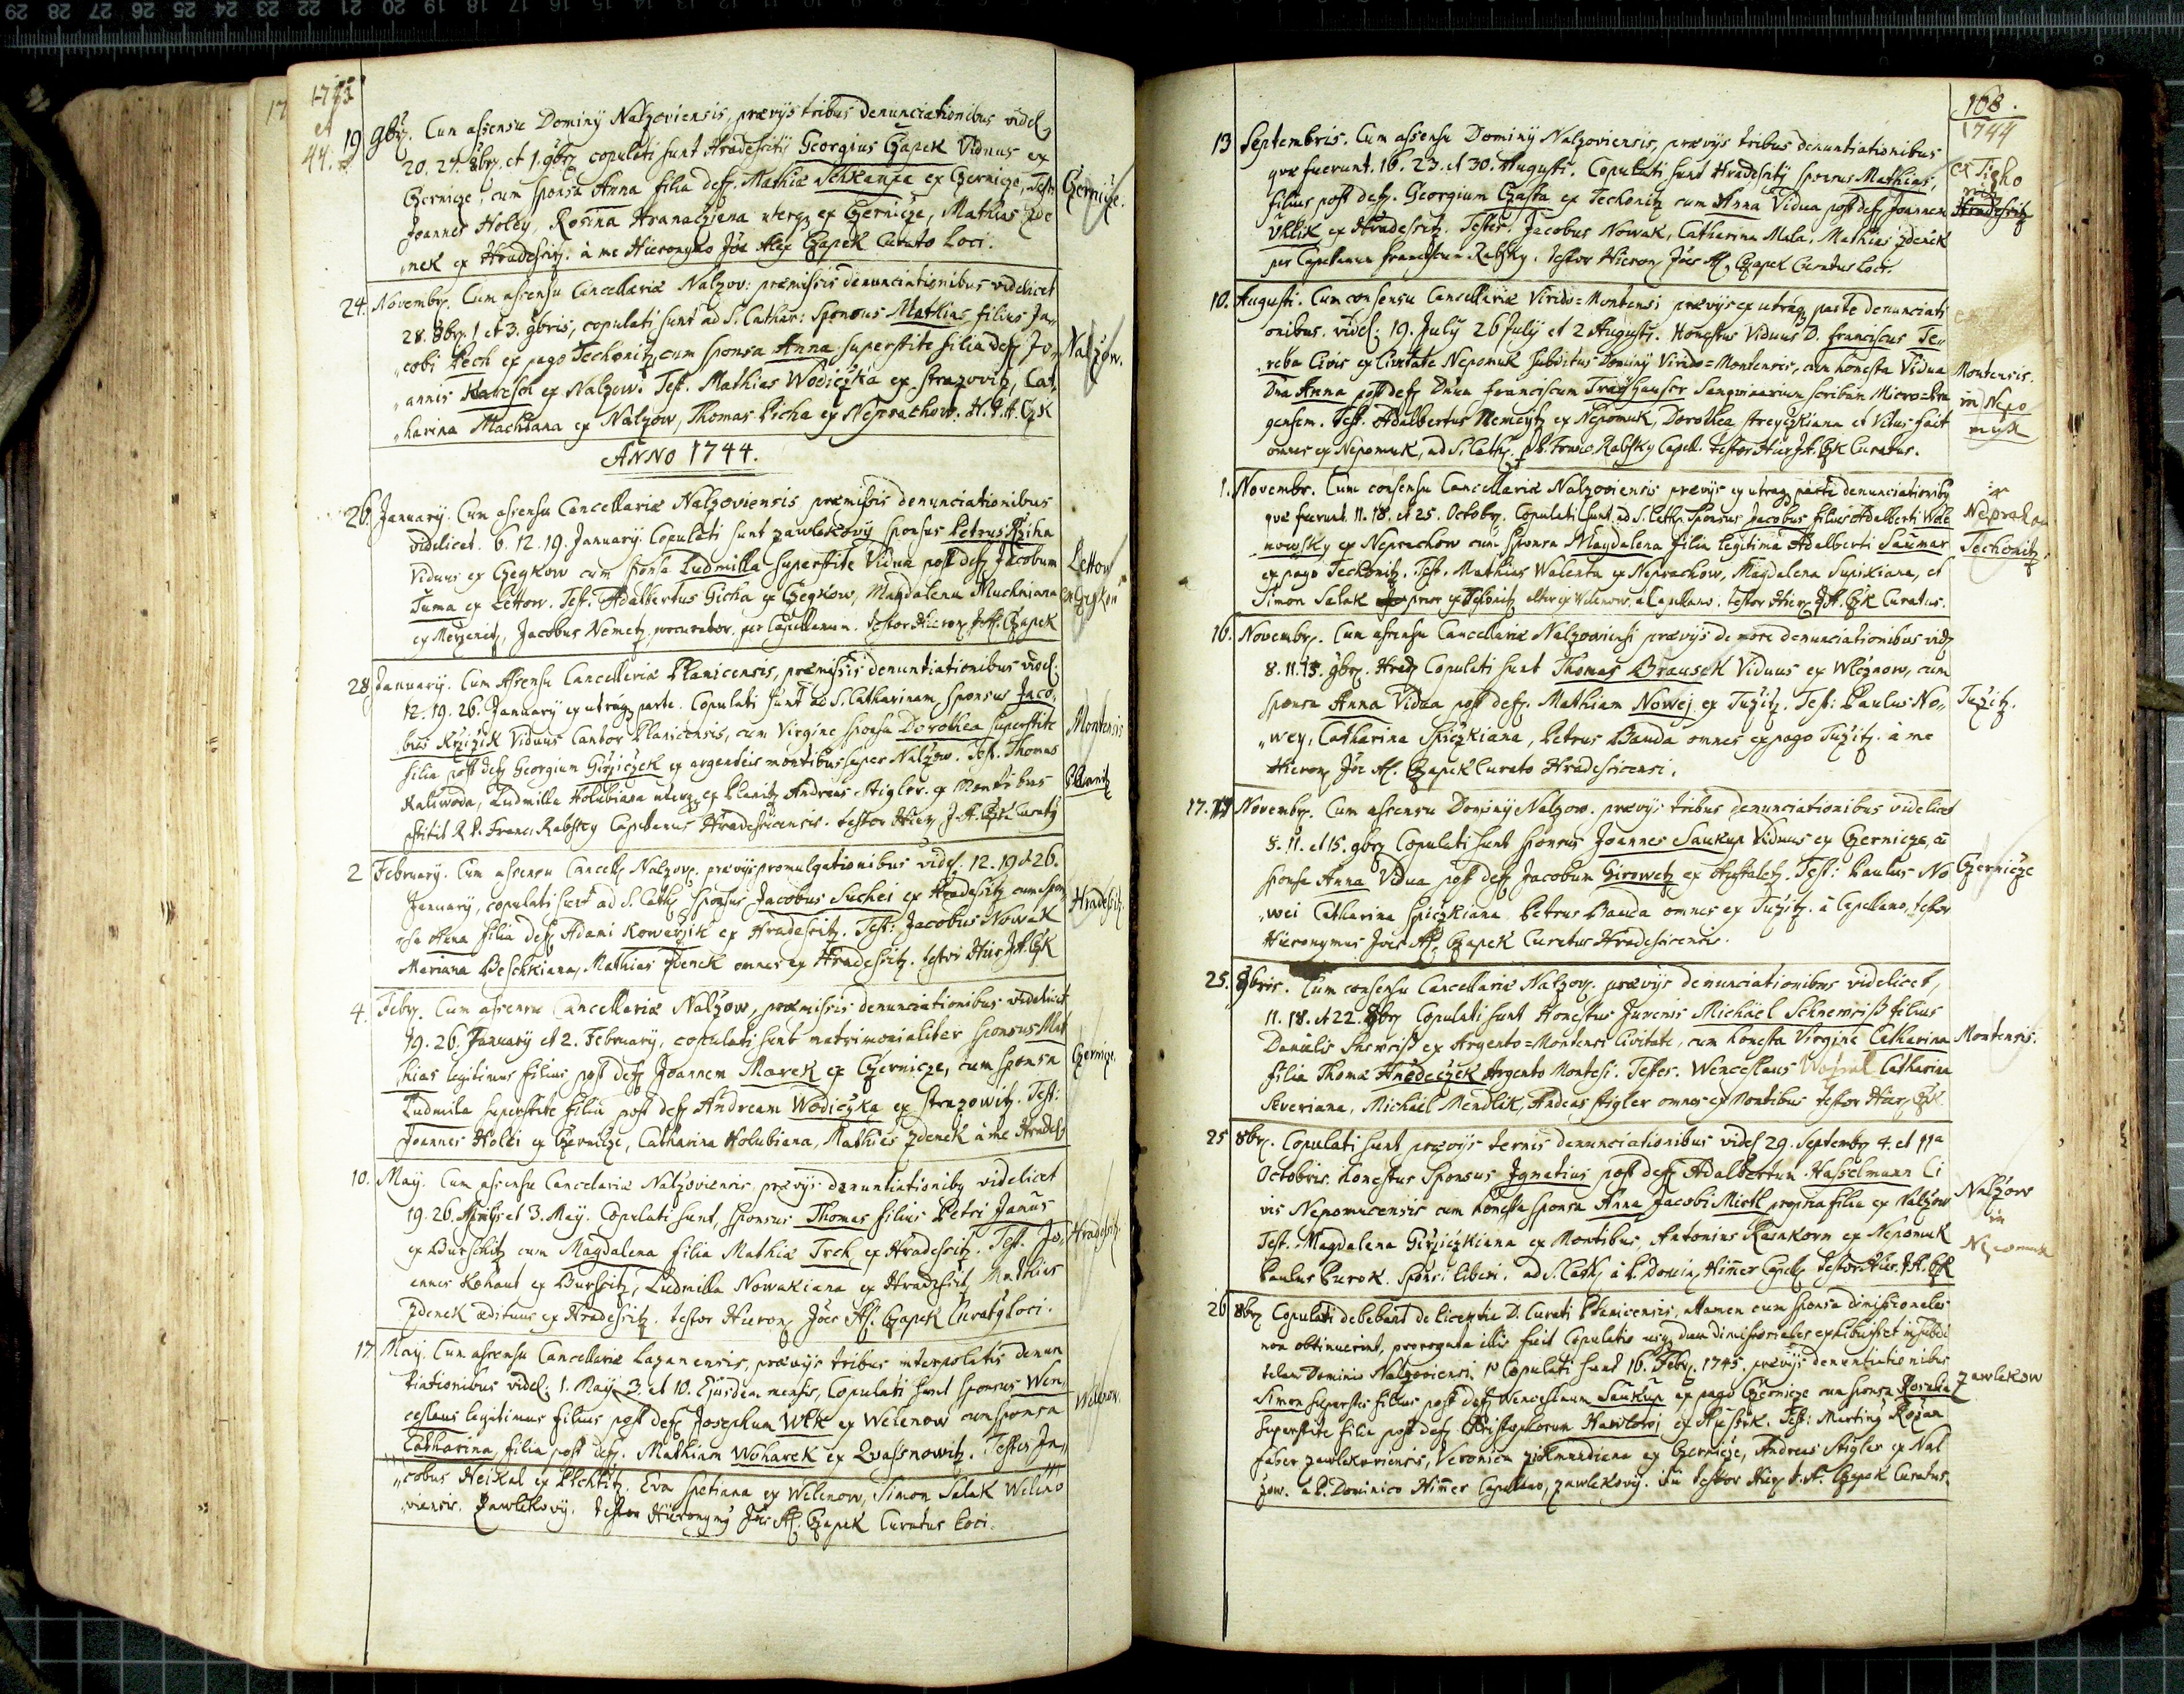 1743
et
44.
19 9bris. Cum assensu Dominij Nalzoviensis, praevijs tribus denunciationibus videl.
20. 27. 8bris. et 1. 9bris copulati sunt Hradescitij Georgius Czapek Viduus ex
Czernicze, cum sponsa Anna filia def. Mathiae ex Czernicze, Test:
Joannes Holey, Rosina Hranaczjena uterq ex Czernicze, Mathias Zde
nek ex Hradesitz. à me Hieronymo Jóe Alex Czapek Curato Loci.
Czernicze.
24. Novembr. Cum assensu Cancellariae Nalzov: praemissis denunciationibus videlicet
28. 8br. 1 et 3. 9bris, copulati sunt ad S. Cathar: Sponsus Mathias filius Ja„
„cobi Pech ex pago Techonitz, cum sponsa Anna superstite filia def. Jo„
„annis ex Nalzow. Test. Mathias Wodiczka ex Strazovitz, Cat„
„harina Machtana ex Nalzow, Thomas Picha ex Neprachow. H. J. A. Czk
Nalzow.
ANNO 1744.
26. January. Cum assensu Cancellariae Nalzoviensis praemissis denunciationibus
videlicet. 6. 12. 19. January. Copulati sunt zawlekovij sponsus Petrus Rziha
Viduus ex Czegkow cum sponsa Ludmilla superstite Vidua post def Jacobum
Tuma ex Lettow. Test. Adalbertus Gicha ex Czegkow, Magdalena Muchniana
ex Merzenitz, Jacobus Nemetz, procurator, per Capellanum. testor Hieron J. A. Czapek
Lettow
Czegkow
28 January. Cum Assensu Cancellariae Planicensis, praemissis denuntiationibus videl.
12. 19. 26. January ex utráq parte. Copulati sunt ad S. Catharinam, sponsus Jaco„
bus Krziczik Viduus Cantor Planicensis, cum Virgine sponsa Dorothea superstite
filia post def. Georgium Girziczek ex argenteis montibus super Nalzow. Test. Thomas
Kaliwoda, Ludmilla Holubiana uterq ex Planitz Andreas Stigler ex Montibus
R. P. Franc: Rabsky Capellanus Hradescicensis. testor Hier J. A. Czk Curatq
Montensis
Planitz
2 February. Cum assensu Cancell. Nalzov. praevijs promulgationibus videl. 12. 19 & 26.
January, copulati sunt ad S. Cath. Sponsus Jacobus Suchei ex Hradesitz cum spon
sa Anna filia def. Adami Kowarzik ex Hradesitz. Test: Jacobus Nowak
Mariana Beschkiana, Mathias Zdenek omnes ex Hradesitz. testor Hier J. A. Czk
Hradesitz.
4. Febr. Cum assensu Cancellariae Nalzow, praemissis denunciationibus videlicet
19. 26. January et 2. February, copulati sunt matrimonialiter sponsus Mat
hias legitimus filius post def. Joannem Marek ex Czernicze, cum sponsa
Ludmila superstite filia post def Andream Wodiczka ex Strazowitz. Test:
Joannes Holei ex Czernicze, Catharina Holubiana, Mathias Zdenek à me
Czernicze.
10. May. Cum assensu Cancelariae Nalzoviensis praevijs denuntiationibq videlicet
19. 26. Aprilis et 3. May. Copulati sunt, sponsus Thomas filius Petri Janus
ex Burschitz cum Magdalena filia Mathiae Trch ex Hradesitz. Test. Jo„
annes Kohaut ex Burschitz, Ludmilla Nowakiana ex Hradesitz Mathias
Zdenek aedituus ex Hradesitz. testor Hieron Jóes Al. Czapek Curatq loci.
Hradesitz
17. May. Cum assensu Cancellariae Lazanensis, praevijs tribus interpolatis denun
tiationibus videl. 1. May 3. et 10. Ejusdem mensis, Copulati sunt sponsus Wen„
ceslaus legitimus filius post def. Josephum Wlk ex Welenow cum sponsa
Catharina, filia post def. Mathiam Woharek ex Kvassnowitz. Testes Ja„
„cobus Heikal ex Plchtitz. Eva Spetiana ex Welenow, Simon Salak Weleno
„viensis. Zawlekovij. testor Hieronymq Jóes Al. Czapek Curatus Loci.
Welenow.
168.
1744
13 Septembris. Cum assensu Dominij Nalzoviensis, praevijs tribus denuntiationibus
quae fuerunt. 16. 23. et 30. Augusti. Copulati sunt Hradesitij sponsus Mathias,
filius post def. Georgium Czasta ex Techonitz cum Anna Vidua post def. Joannem
Uhlik ex Hradesitz. Testes. Jacobus Nowak, Catharina Mala, Mathias Zdenek
per Capellanum Franciscum Rabsky. testor Hieron Jóes Al. Czapek Curatus Loci.
Hradesitz
10. Augusti. Cum consensu Cancellariae Virido=Montensi praevijs ex utráq parte denunciati
onibus. videl. 19. July 26 July et 2 Augusti. Honestus Viduus D. Franciscus Te„
„reba Civis ex Civitate Nepomuk subditus Dominij Virido=Montensis, cum honesta Vidua
Dna Anna post def Dnum Franciscum Trayhauser
gensem. Test. Adalbertus Nemeytz ex Nepomuk, Dorothea Streyczkiana et Vitus Sait
omnes ex Nepomuk, ad S. Cath. Rabsky Capell. testor Hier J. A. Czk Curatus.
Montensis.
in Nepo
muk
1. Novembr. Cum consensu Cancellariae Nalzoviensis praevijs ex utraq parte denunciationibq
quae fuerunt. 11. 18. et 25. Octobr. Copulati sunt ad S. Cath. Sponsus Jacobus filius Adalberti Wole
nowsky ex Neprachow cum Sponsa Magdalena filia legitima Adalberti Saumar
ex pago Techonitz. Test. Mathias Walenta ex Neprachow, Magdalena Supikiana, et
Simon Salak prior ex Techonitz alter ex Welenow, à Capellano. testor Hier J. A. Czk Curatus.
in
Neprachow
Techonitz.
16. Novembr. Cum assensu Cancellariae Nalzowiensi praevijs de more denunciationibus vid.
8. 11. 15. 9br. Hrad. Copulati sunt Thomas Brausek Viduus ex Wlcznow, cum
sponsa Anna Vidua post def. Mathiam Nowej ex Tuzitz. Test: Paulus No„
„wey, Catharina Spiczkiana, Petrus Bauda omnes ex pago Tuzitz. à me
Hieron Jóe Al. Czapek Curato Hradesicensi.
Tuzitz.
17. Novembr. Cum assensu Dominij Nalzow. praevijs tribus denunciationibus videlicet
8. 11. et 15. 9br. Copulati sunt sponsus Joannes Saukup Viduus ex Czernicze, cū
sponsa Anna Vidua post def. Jacobum Girowetz ex Aystaletz. Test: Paulus No
„wei Catharina Spiczkiana Petrus Bauda omnes ex Tuzitz. à Capellano, testor
Hieronymus Joes Al. Czapek Curatus Hradesicensis.
Czernicze
25. 9bris. Cum consensu Cancellariae Nalzov. praevijs denunciationibus videlicet,
11. 18. et 22. 9br Copulati sunt Honestus Juvenis Michäel Schneweiß filius
Danielis Sneweiß ex Argento=Montensi Civitate, cum honesta Virgine Catharina
filia Thomae Hnedeczek Argento Montesi. Testes. Wenceslaus Catharina
Severiana, Michäel Mendlik, Andeas Stigler omnes ex Montibus testor Hier, Czk.
Montensis.
25 8br. Copulati sunt praevijs ternis denunciationibus videl 29. Septembr 4. et 11a
Octobris. honestus Sponsus Ignatius post def Adalbertum Hasselmann Ci
vis Nepomucensis cum honesta sponsa Anna Jacobi Mertl propria filia ex Nalzow
Test. Magdalena Girziczkiana ex Montibus Antonius Rosnkorn ex Nepomuk
Paulus Burok. Sponsi liberi. ad S. Cath. à P. Domin. Himer Capell. testor Hier. J. A. Czk
Nalzow
in
Nepomuk
26 8br Copulati debebant de licentia D. Curati Planicensis, attamen cum sponsa dimissoriales
non obtinuerint, prorogata illis fuit Copulatio usq dum dimissoriales exhibuisset in subdi
telam Dominio Nalzoviensi, Copulati sunt 16. Febr. 1745. praevijs denuntiationibus
Simon superstes filius post def. Wenceslaum Saukup ex pago Czernicze cum sponsa Rosalia
superstite filia post def. Christophorum ex. Test: Martinq Rozan
faber zawlekoviensis, Veronica ex Czernicze, Andreas Stigler ex Nal
zow. à P. Dominico Himer Capellano, zawlekovij. ita testor Hier J. A. Czapek Curatus.
zawlekow